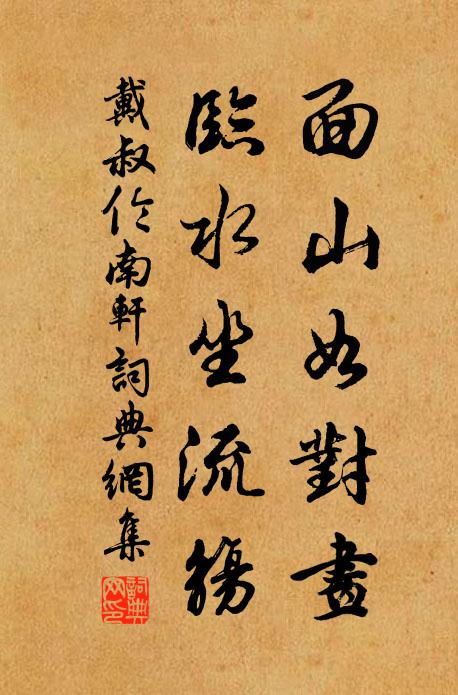 面山如對畫
臨水坐流觴
戴叔倫南軒詞典網集
詞典網印